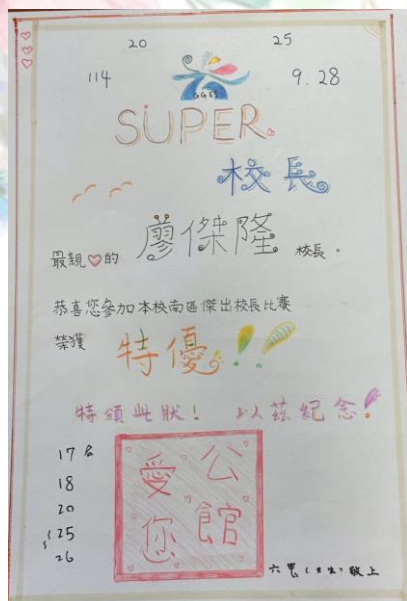 20 25
114 9.28
GGES
SUPER
校長
最親♡的 廖傑隆 校長。
恭喜您參加本校南區傑出校長比賽
榮獲 特優!!
特頒此狀! 以茲紀念!
17名
18
20
25
26
公館
愛您
敬上